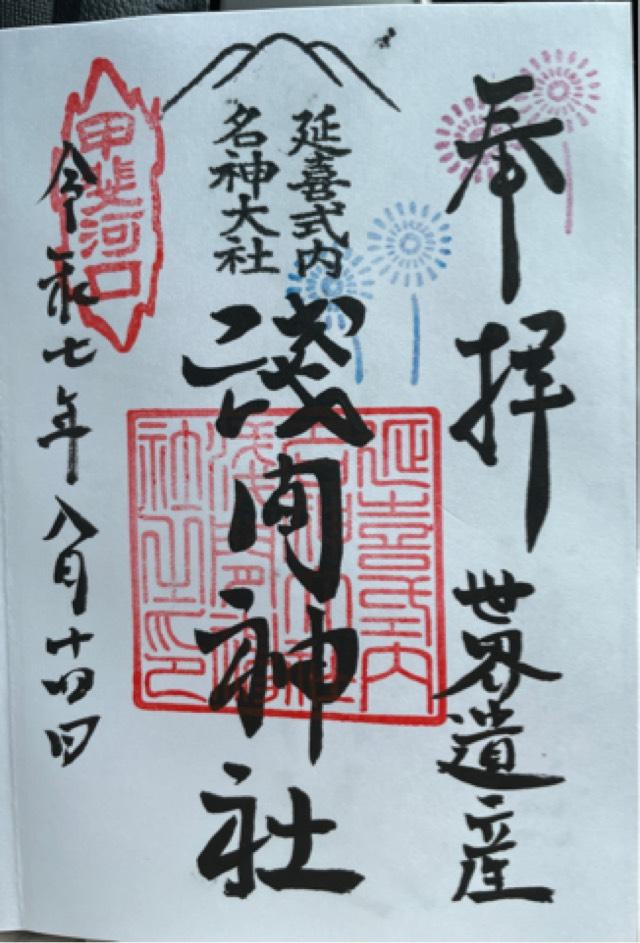 奉拝
世界遺産
延喜式内
名神大社
淺間神社
延喜式内
名神大社
淺間神
社之印
甲斐河口
令和七年八月十四日